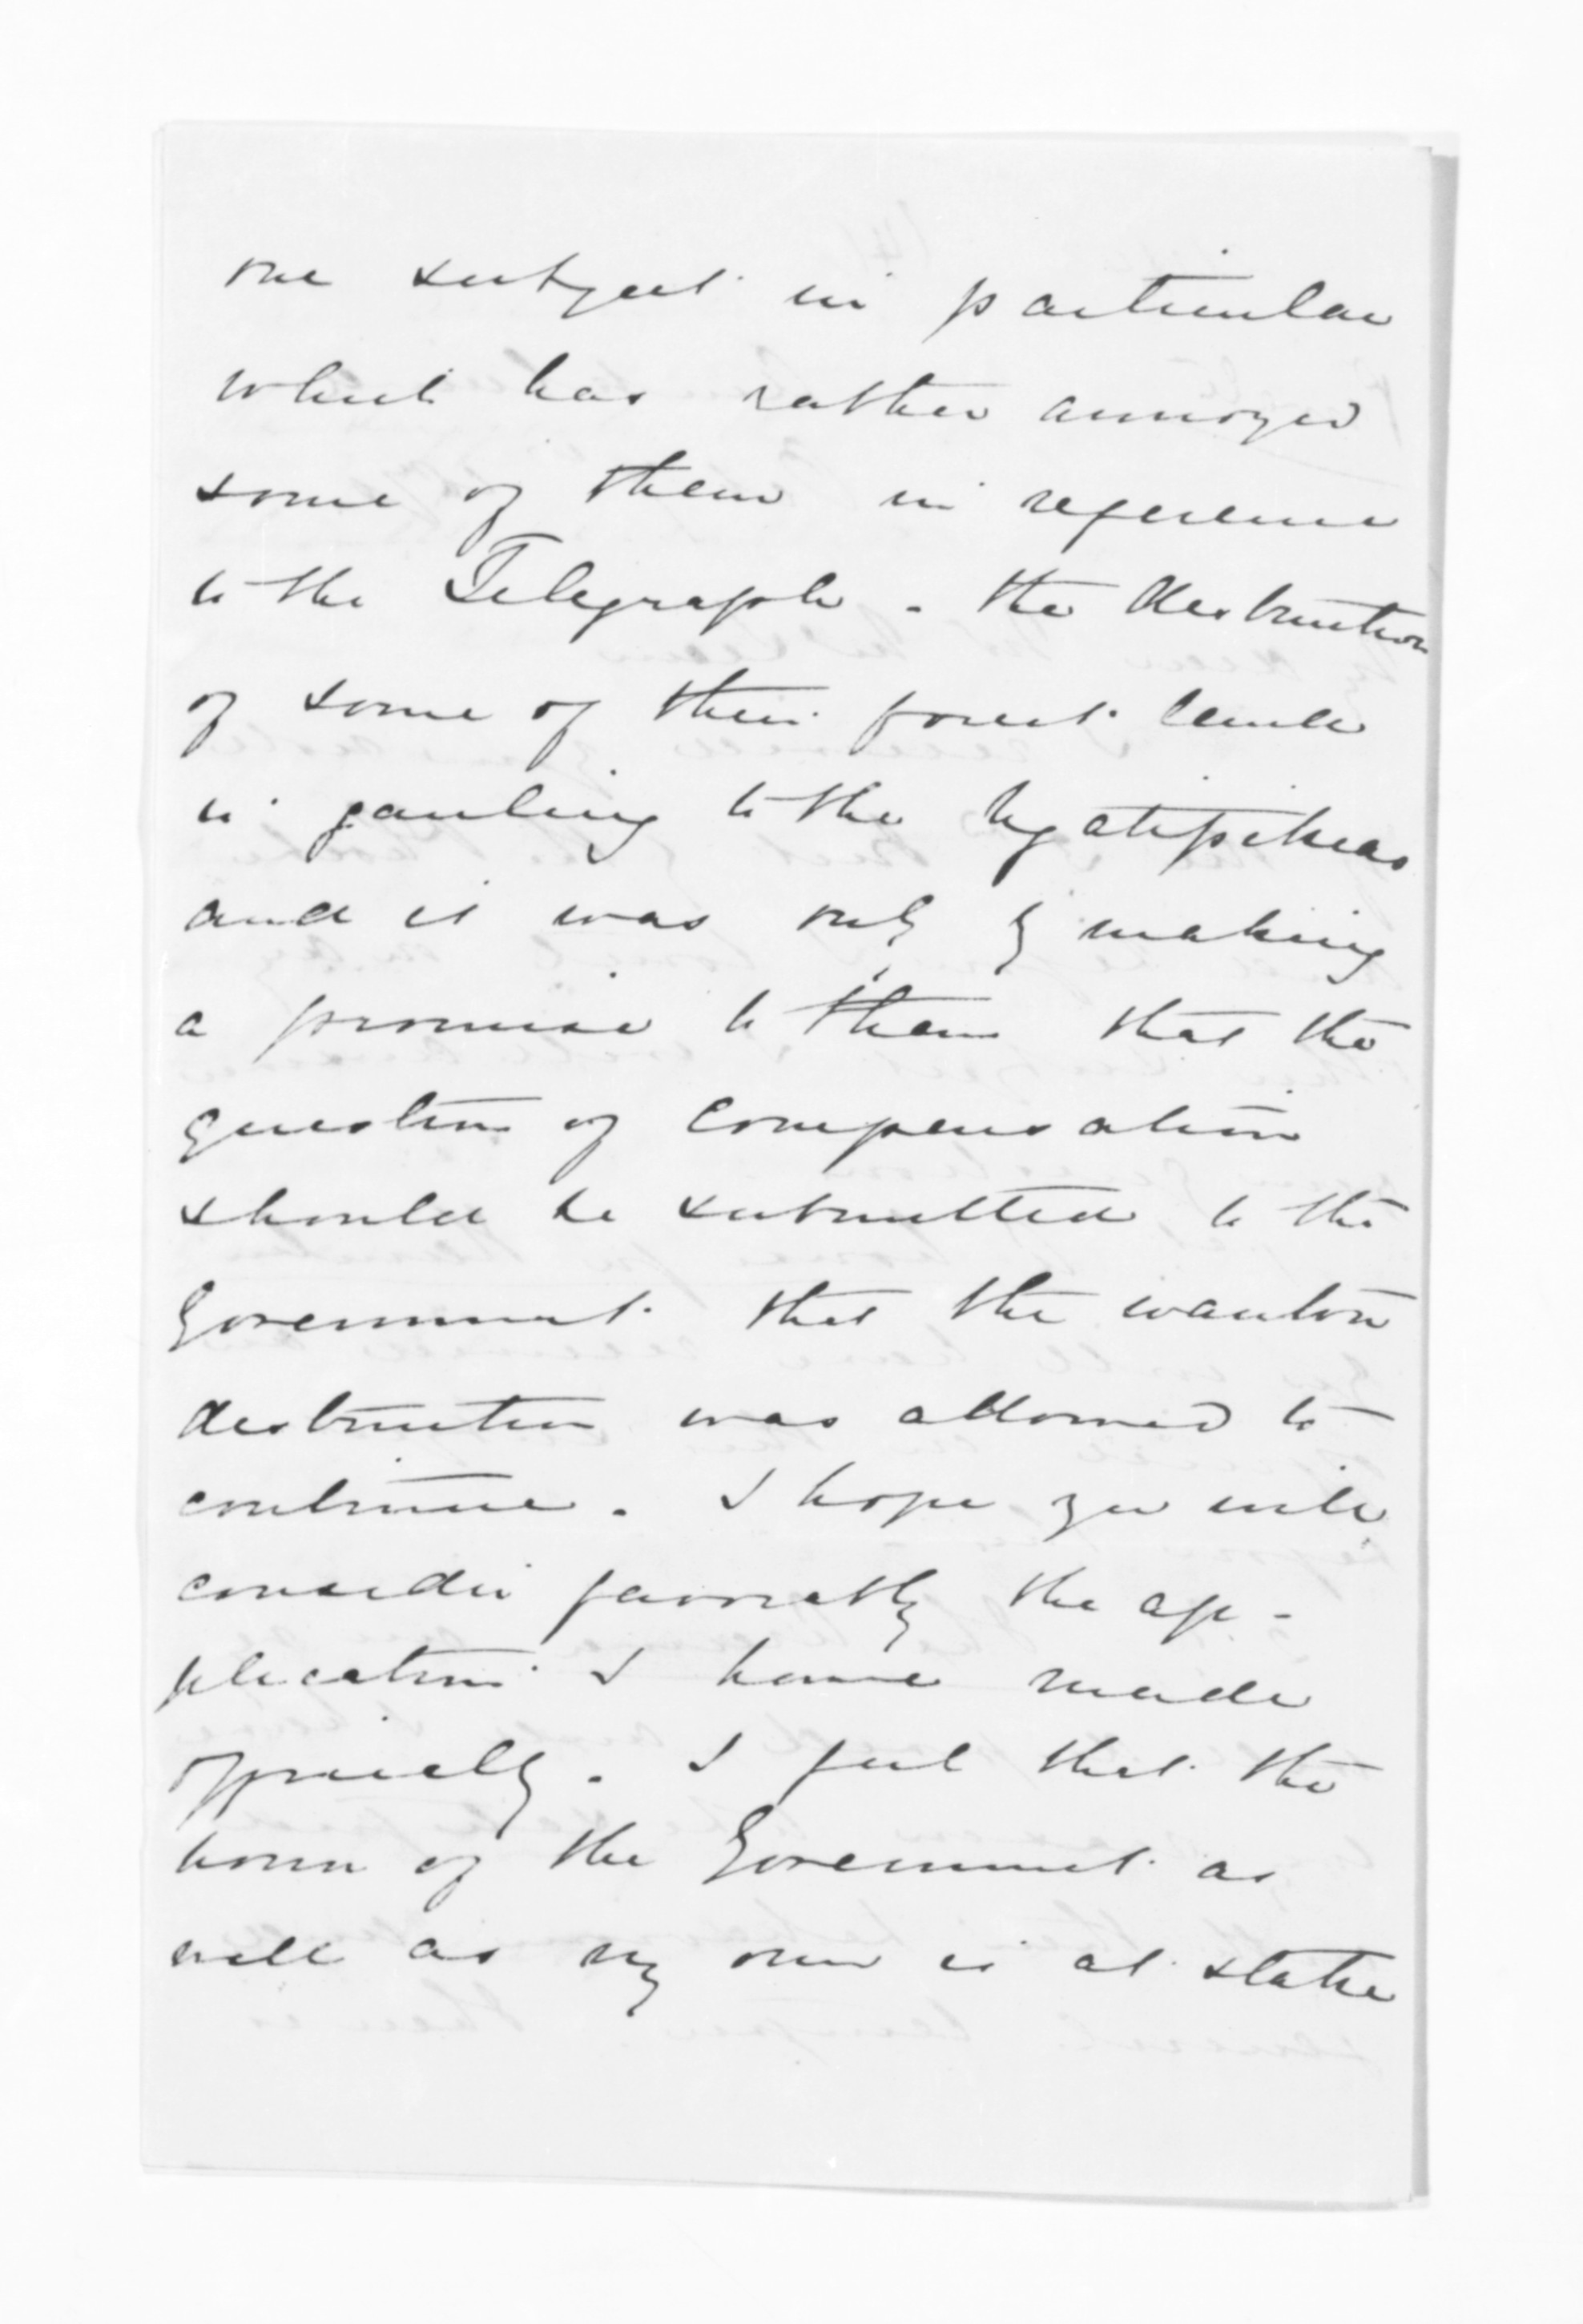 one subject in particular
which has rather annoyed
some of them in reference
to the Telegraph - the destruction
of some of their forest land
in gauling to the Ngatipikiao
and it was only by making
a promise to them that the
question of compensation
should be submitted to the
Government that the wanton
destruction was allowed to
continue. I hope you will
consider favorably the ap-
plication I have made
officially. I feel that the
honor of the Government as
well as my own is at stake